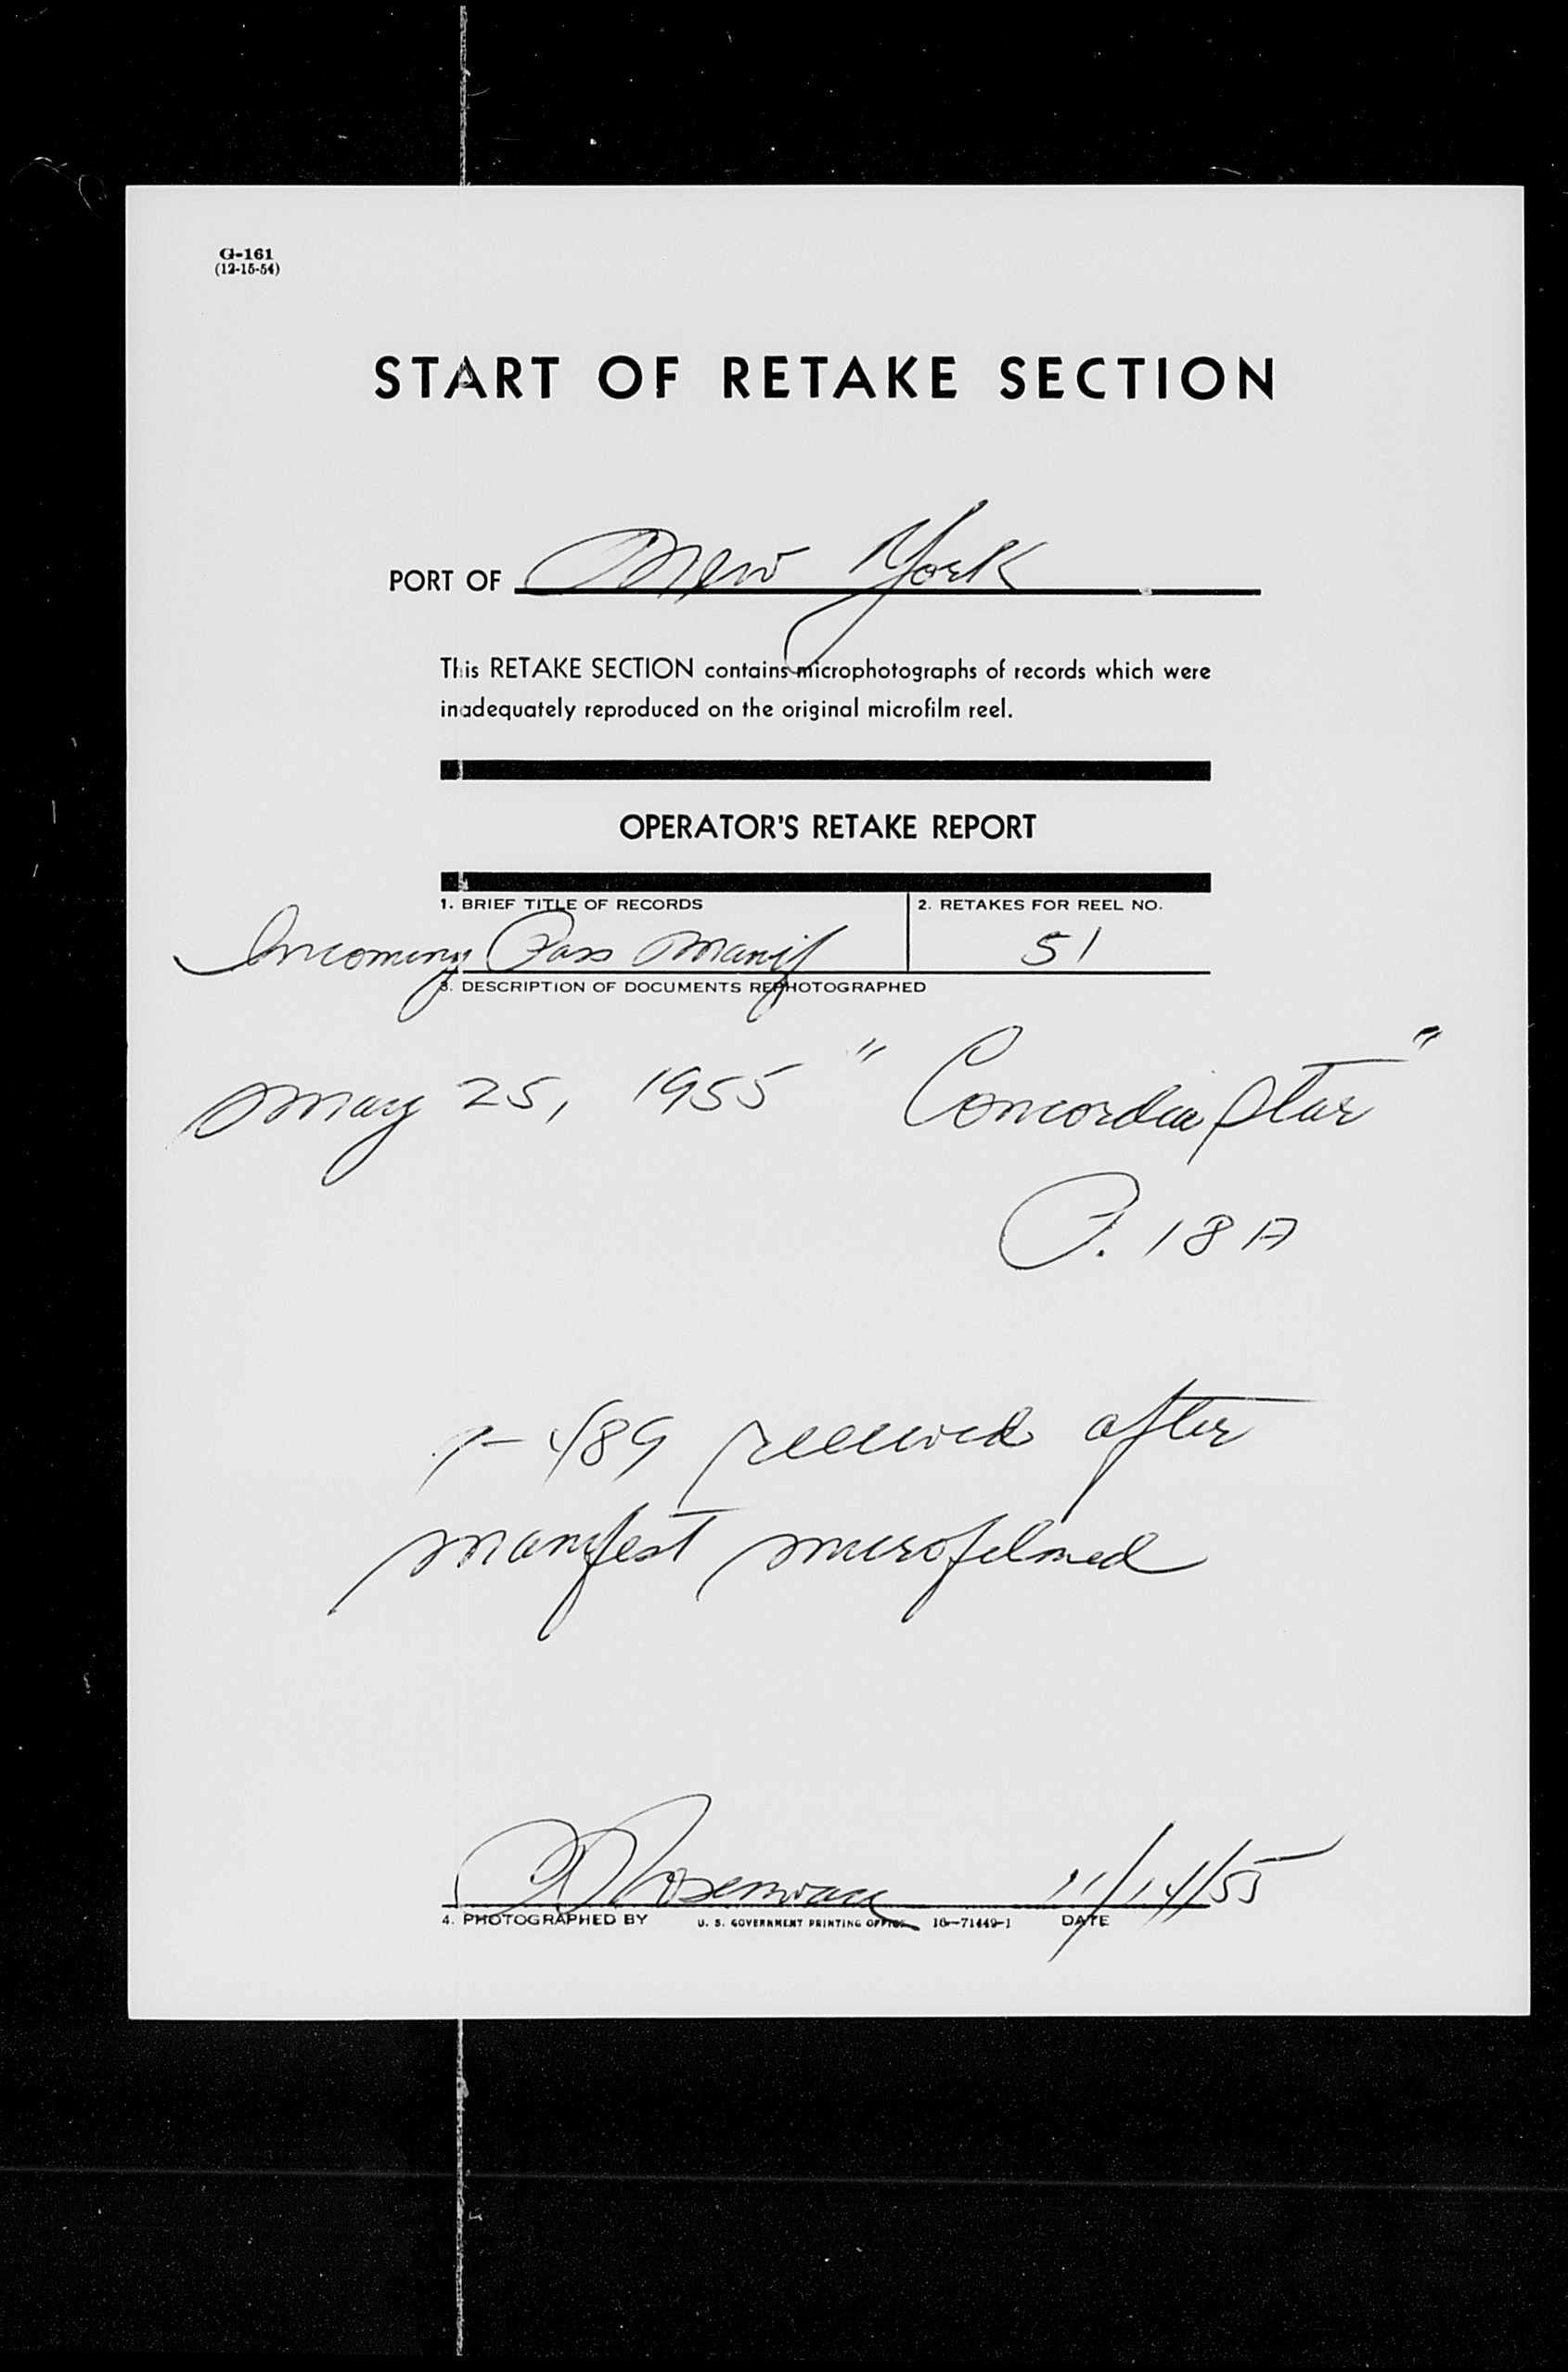 G-161
(12-15-54)
START OF RETAKE SECTION
PORT OF New York
This RETAKE SECTION contains microphotographs of records which were
inadequately reproduced on the original microfilm reel.
OPERATOR'S RETAKE REPORT
1. BRIEF TITLE OF RECORDS 2. RETAKES FOR REEL NO.
Incoming Pass Manif 51
3. DESCRIPTION OF DOCUMENTS REPHOTOGRAPHED
May 25, 1955 "Concordia Star"
P. 18A
489 received after
manifest microfilmed
11/14/55
4. PHOTOGRAPHED BY U. S. GOVERNMENT PRINTING OFFICE 16—71449-1 DATE